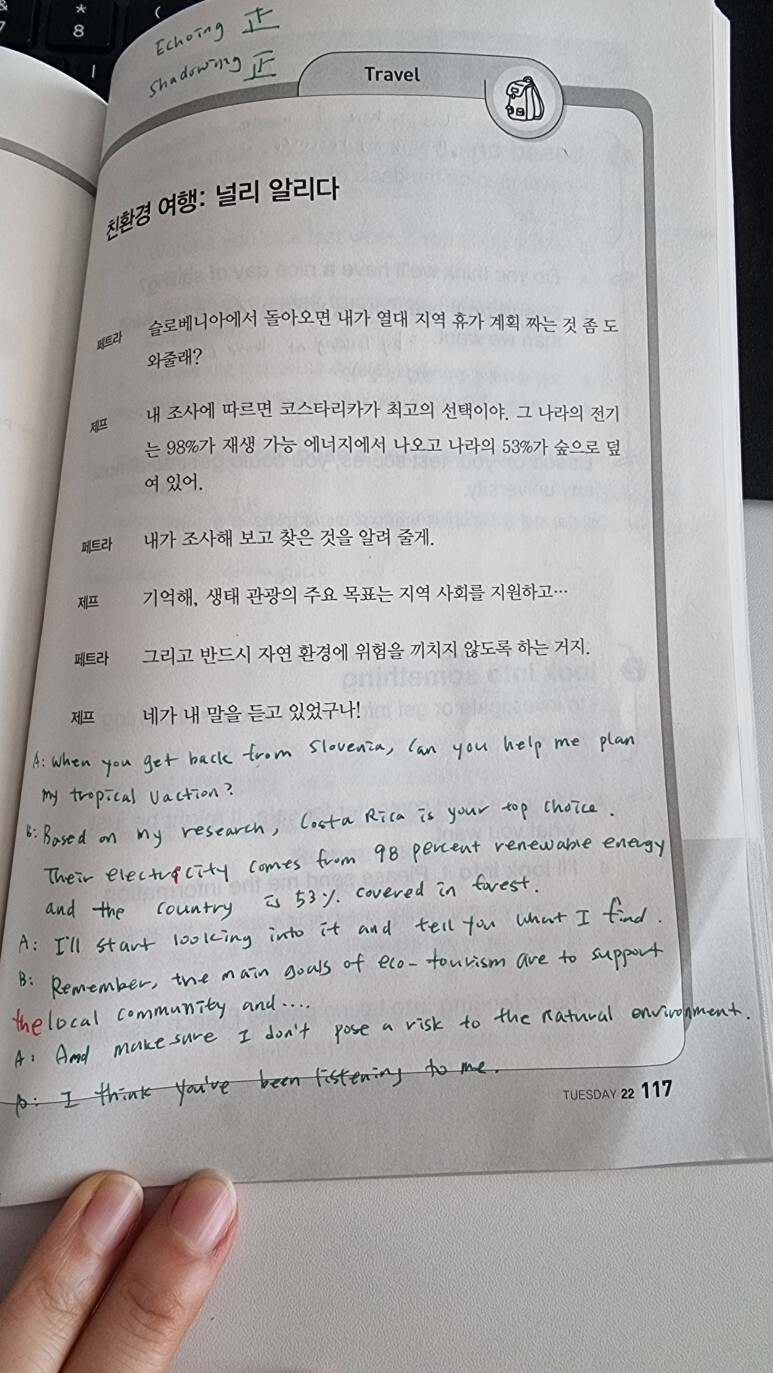 *
8
(
Echoing 正
Shadowing 正
Travel
친환경 여행: 널리 알리다
페트라 슬로베니아에서 돌아오면 내가 열대 지역 휴가 계획 짜는 것 좀 도
와줄래?
제프 내 조사에 따르면 코스타리카가 최고의 선택이야. 그 나라의 전기
는 98%가 재생 가능 에너지에서 나오고 나라의 53%가 숲으로 덮
여 있어.
페트라 내가 조사해 보고 찾은 것을 알려 줄게.
제프 기억해, 생태 관광의 주요 목표는 지역 사회를 지원하고…
페트라 그리고 반드시 자연 환경에 위험을 끼치지 않도록 하는 거지.
제프 네가 내 말을 듣고 있었구나!
A: When you get back from Slovenia, Can you help me plan
my tropical Vaction?
B: Based on my research, Costa Rica is your top choice.
Their electricity comes from 98 percent renewable energy
and the country is 53% covered in forest.
A: I'll start looking into it and tell you what I find.
B: Remember, the main goals of eco-tourism are to support
the local community and....
A: And make sure I don't pose a risk to the natural environment.
B: I think you've been listening to me.
TUESDAY 22 117